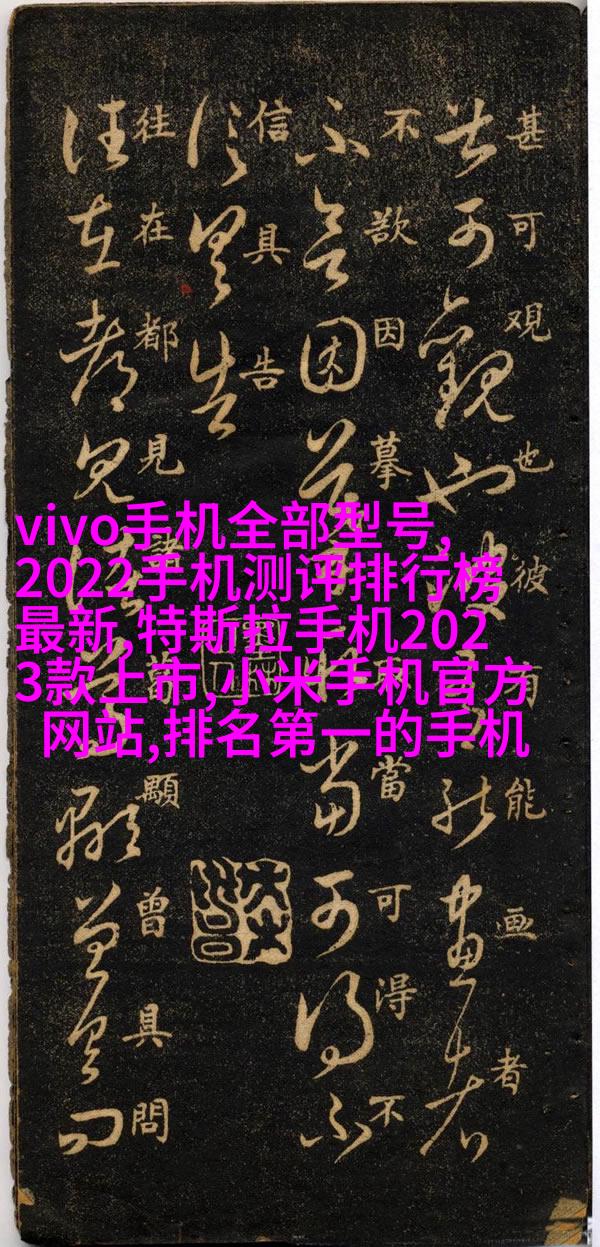 vivo手机全部型号,
2022手机测评排行榜
最新,特斯拉手机202
3款上市,小米手机官方
网站,排名第一的手机
甚可观也彼有能画者
不欲因摹取當可得不
信具告
往在都見諸葛顯曾具問